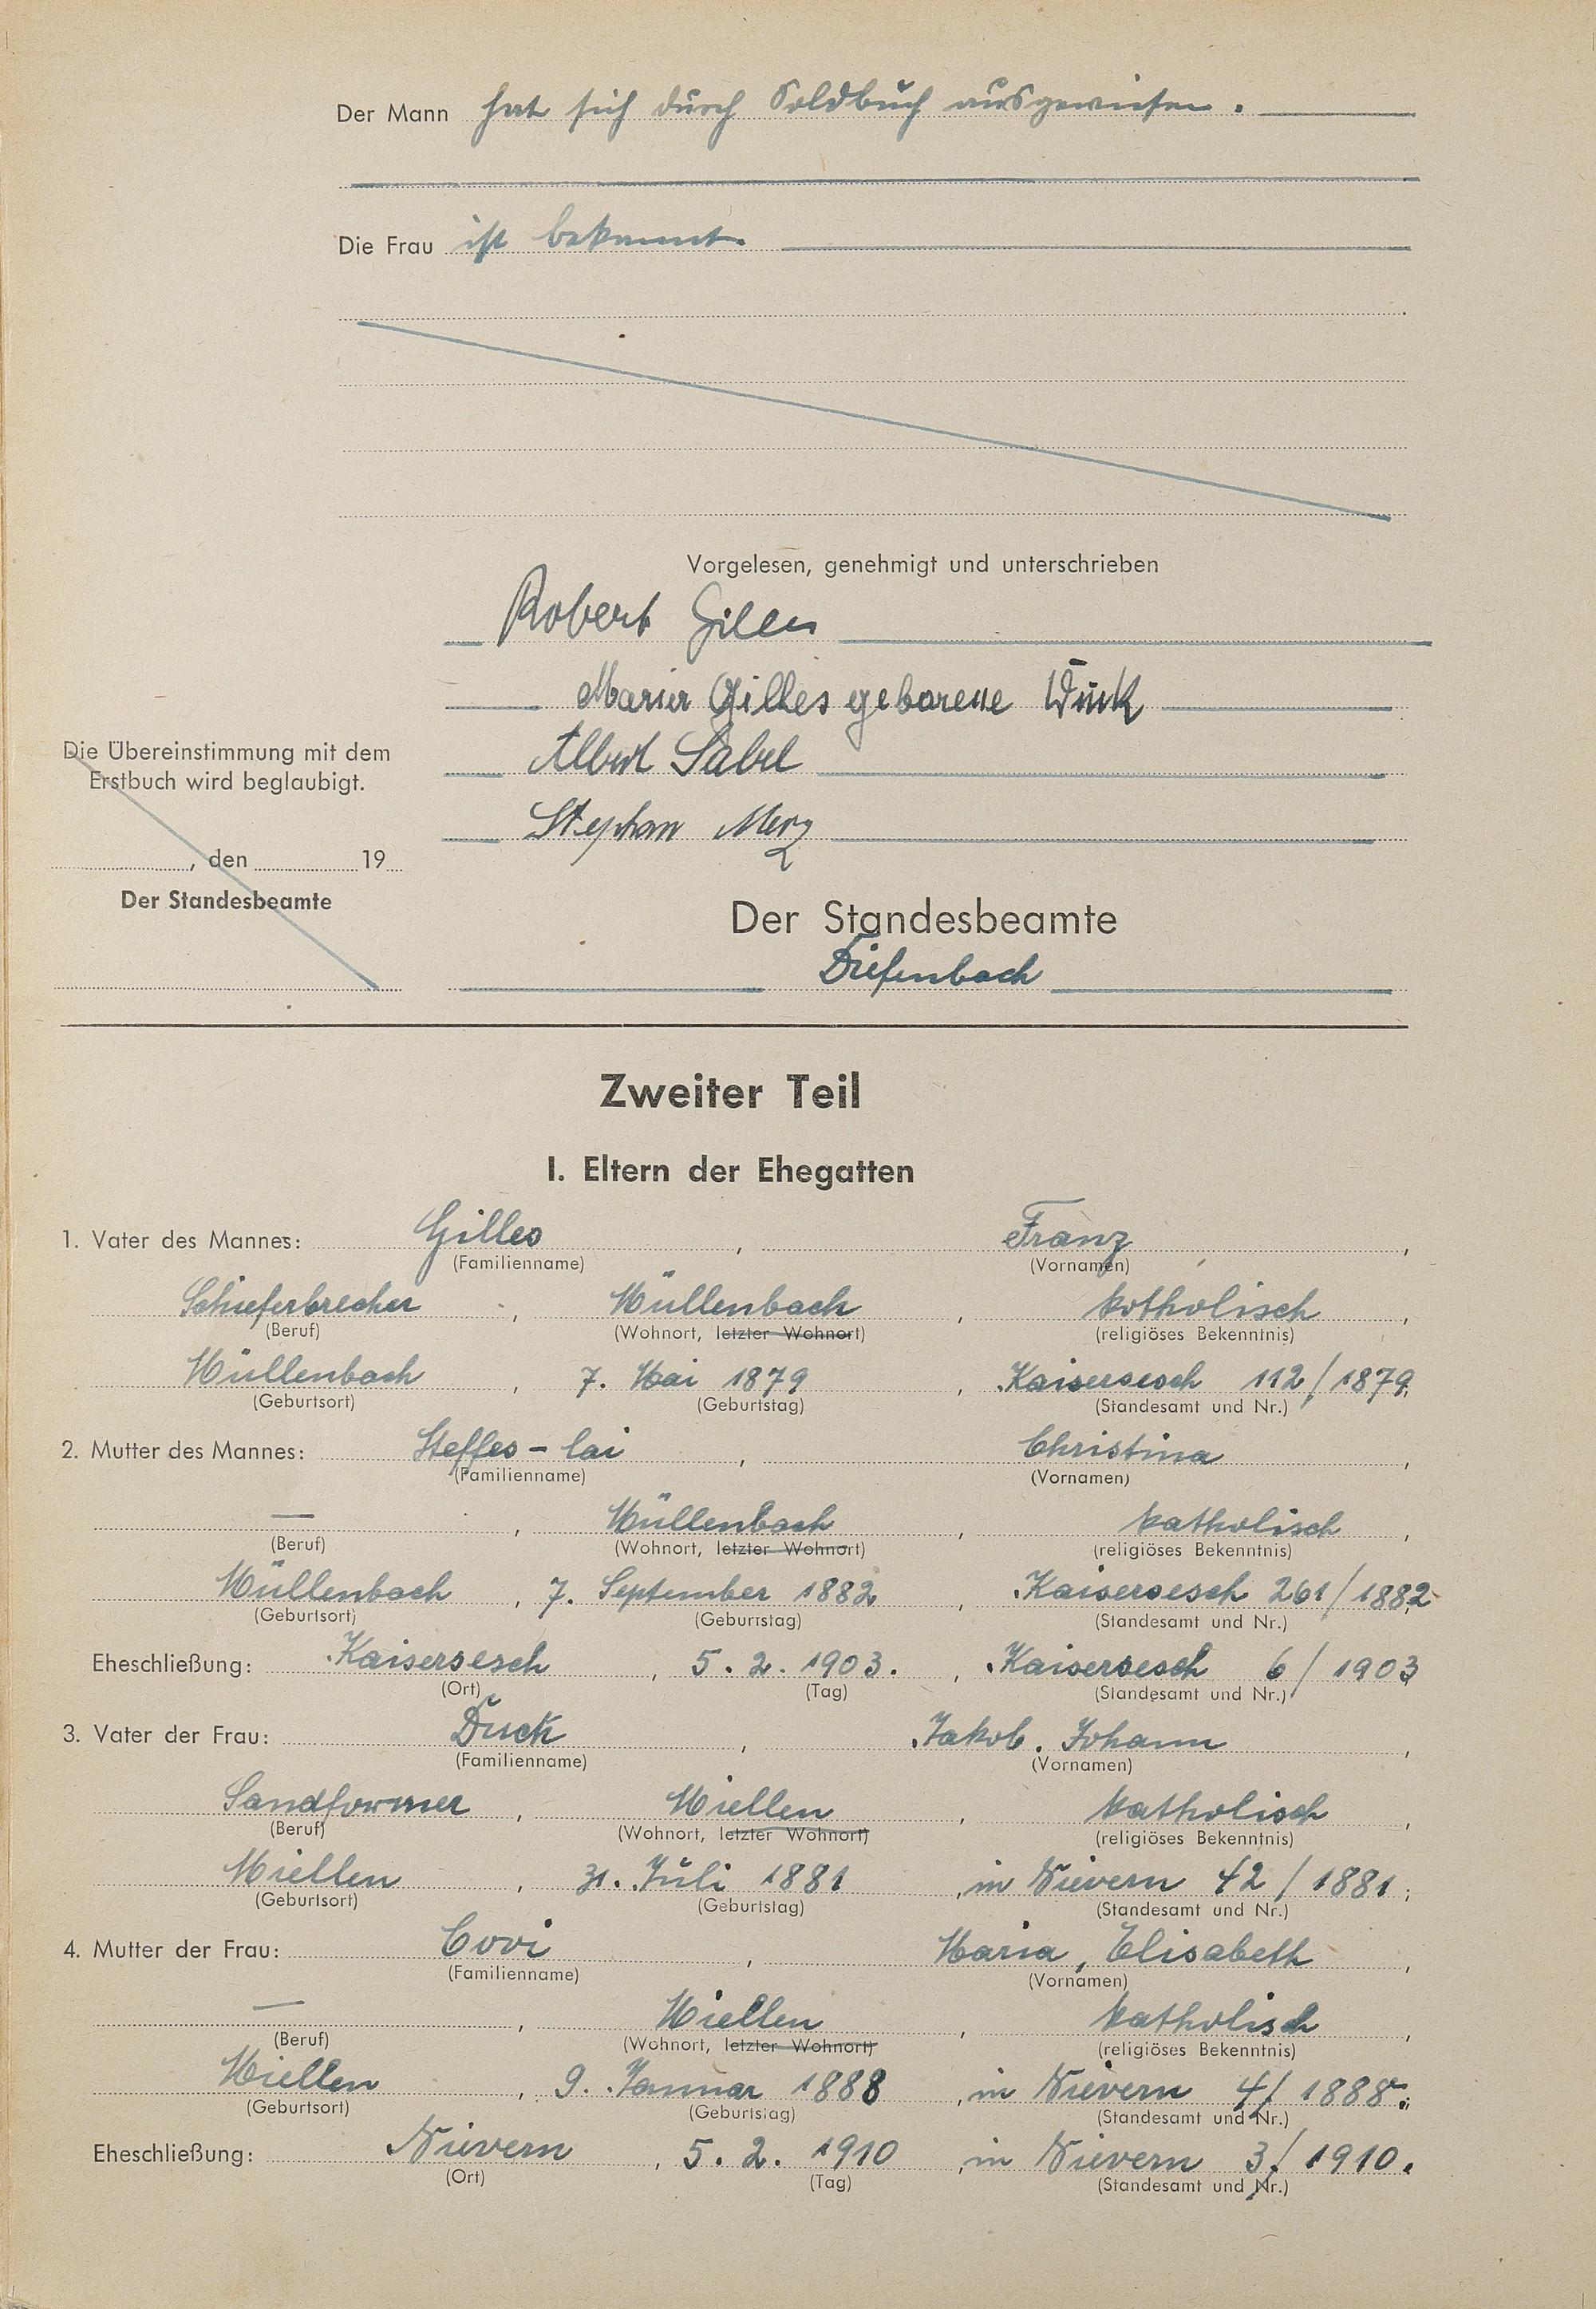 Der Mann hat sich durch Soldbuch ausgewiesen.
Die Frau ist bekannt.
Vorgelesen, genehmigt und unterschrieben
Robert Gilles
Maria Gilles geborene Duck
Albert Sabel
Stephan Merz
Die Übereinstimmung mit dem
Erstbuch wird beglaubigt.
, den 19
Der Standesbeamte
Der Standesbeamte
Diefenbach
Zweiter Teil
I. Eltern der Ehegatten
1. Vater des Mannes: Gilles, Franz,
(Familienname) (Vornamen)
Schieferbrecher, Müllenbach, katholisch,
(Beruf) (Wohnort, letzter Wohnort) (religiöses Bekenntnis)
Müllenbach, 7. Mai 1879, Kaisersesch 112/1879.
(Geburtsort) (Geburtstag) (Standesamt und Nr.)
2. Mutter des Mannes: Steffes-lai, Christina,
(Familienname) (Vornamen)
—, Müllenbach, katholisch,
(Beruf) (Wohnort, letzter Wohnort) (religiöses Bekenntnis)
Müllenbach, 7. September 1882, Kaisersesch 261/1882
(Geburtsort) (Geburtstag) (Standesamt und Nr.)
Eheschließung: Kaisersesch, 5. 2. 1903., Kaisersesch 6/1903
(Ort) (Tag) (Standesamt und Nr.)
3. Vater der Frau: Duck, Jakob. Johann,
(Familienname) (Vornamen)
Sandformer, Miellen, katholisch,
(Beruf) (Wohnort, letzter Wohnort) (religiöses Bekenntnis)
Miellen, 31. Juli 1881, in Nievern 42/1881;
(Geburtsort) (Geburtstag) (Standesamt und Nr.)
4. Mutter der Frau: Covi, Maria, Elisabeth,
(Familienname) (Vornamen)
—, Miellen, katholisch,
(Beruf) (Wohnort, letzter Wohnort) (religiöses Bekenntnis)
Miellen, 9. Januar 1888, in Nievern 4/1888.;
(Geburtsort) (Geburtstag) (Standesamt und Nr.)
Eheschließung: Nievern, 5. 2. 1910, in Nievern 3/1910.
(Ort) (Tag) (Standesamt und Nr.)